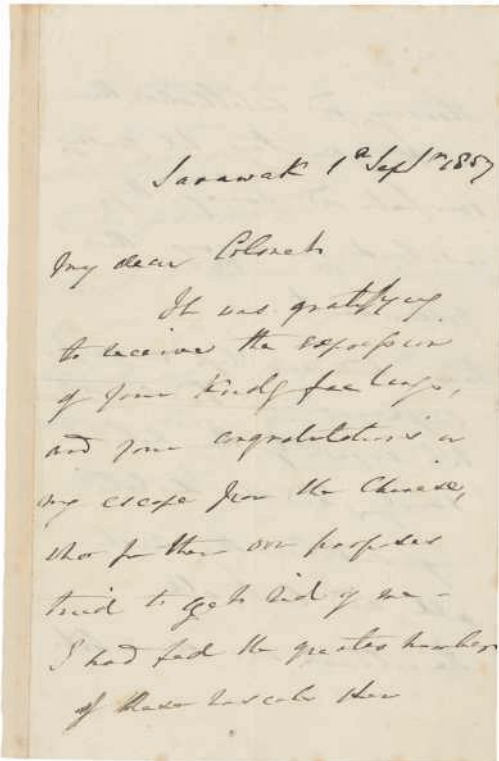 Sarawak 1st Septr 1857
My dear Colonel
It was gratifying
to receive the expression
of your kindly feelings,
and your congratulations on
my escape from the Chinese,
who for their own purposes
tried to get rid of me -
I had fed the greater number
of these rascals